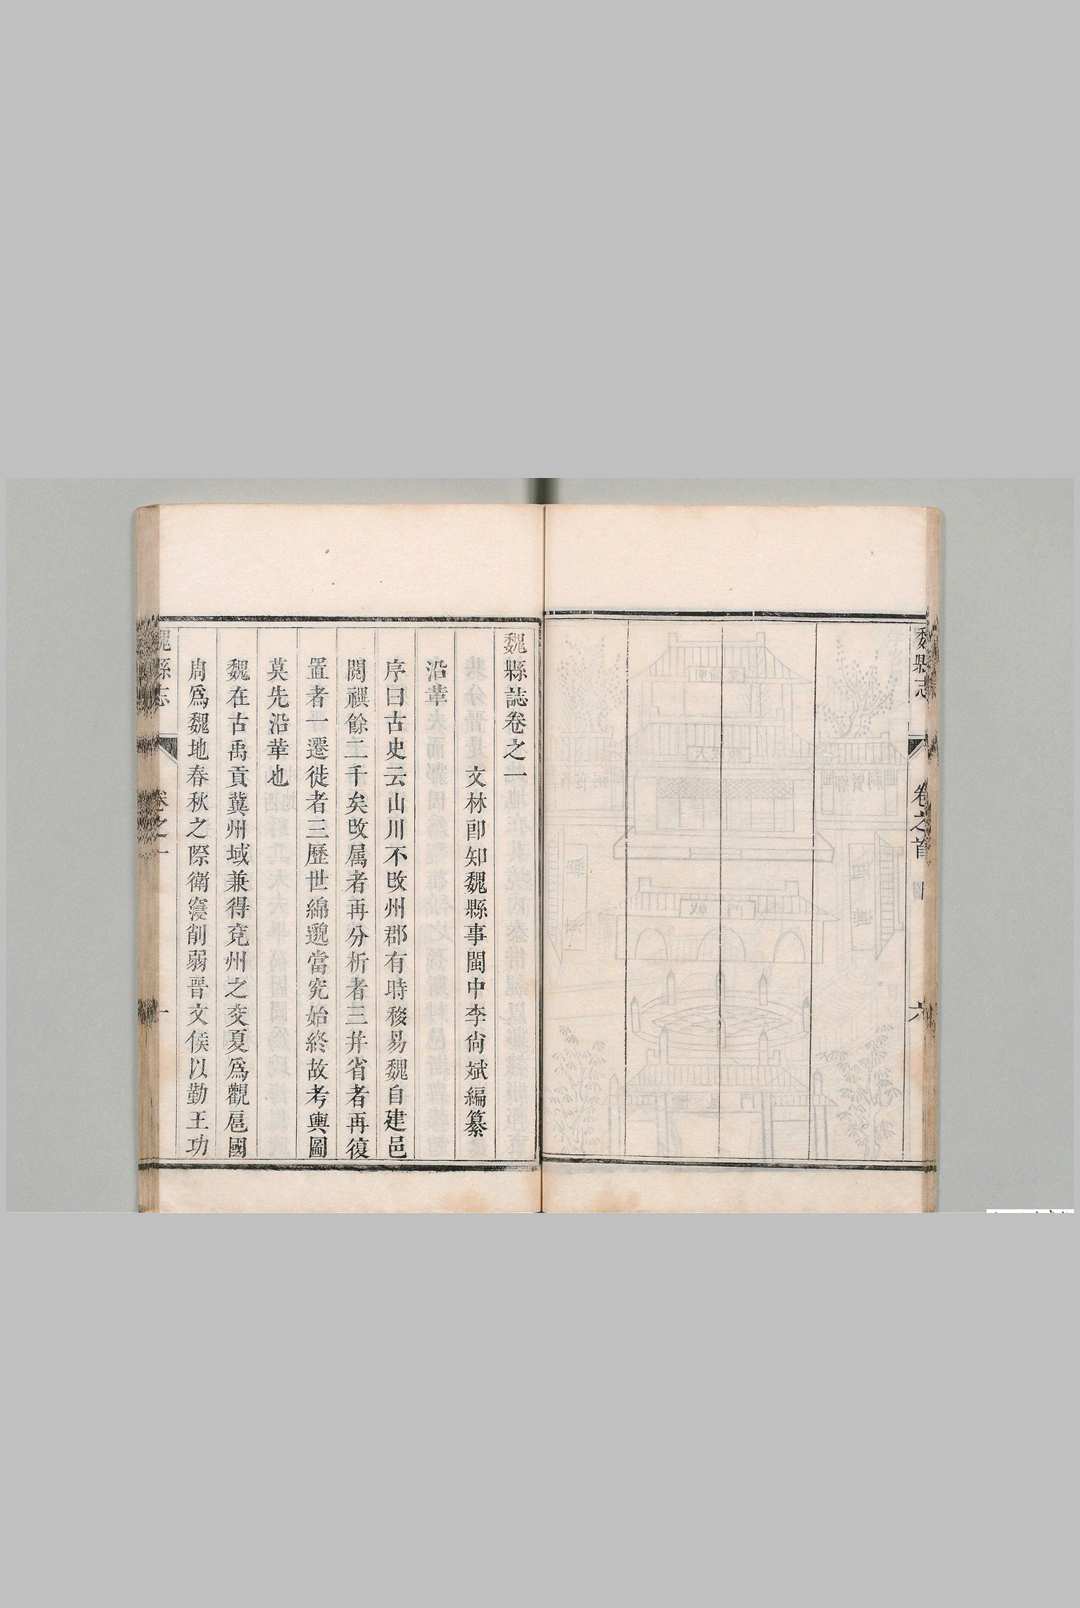 魏縣志
卷之首
圖
六
魏縣誌卷之一
文林郎知魏縣事閩中李尙斌編纂
沿革
序曰古史云山川不改州郡有時移易魏自建邑
閱禩餘二千矣改属者再分析者三并省者再復
置者一遷徙者三歷世綿邈當究始終故考輿圖
莫先沿革也
魏在古禹貢冀州域兼得兗州之交夏爲觀扈國
周爲魏地春秋之際衛寖削弱晉文侯以勤王功
魏縣志
卷之一
一